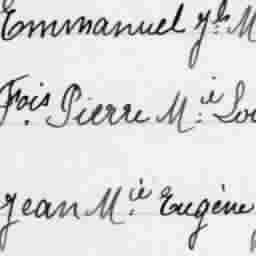 Emmanuel
Fois Pierre M.ie Lou
Jean M.ie Eugène